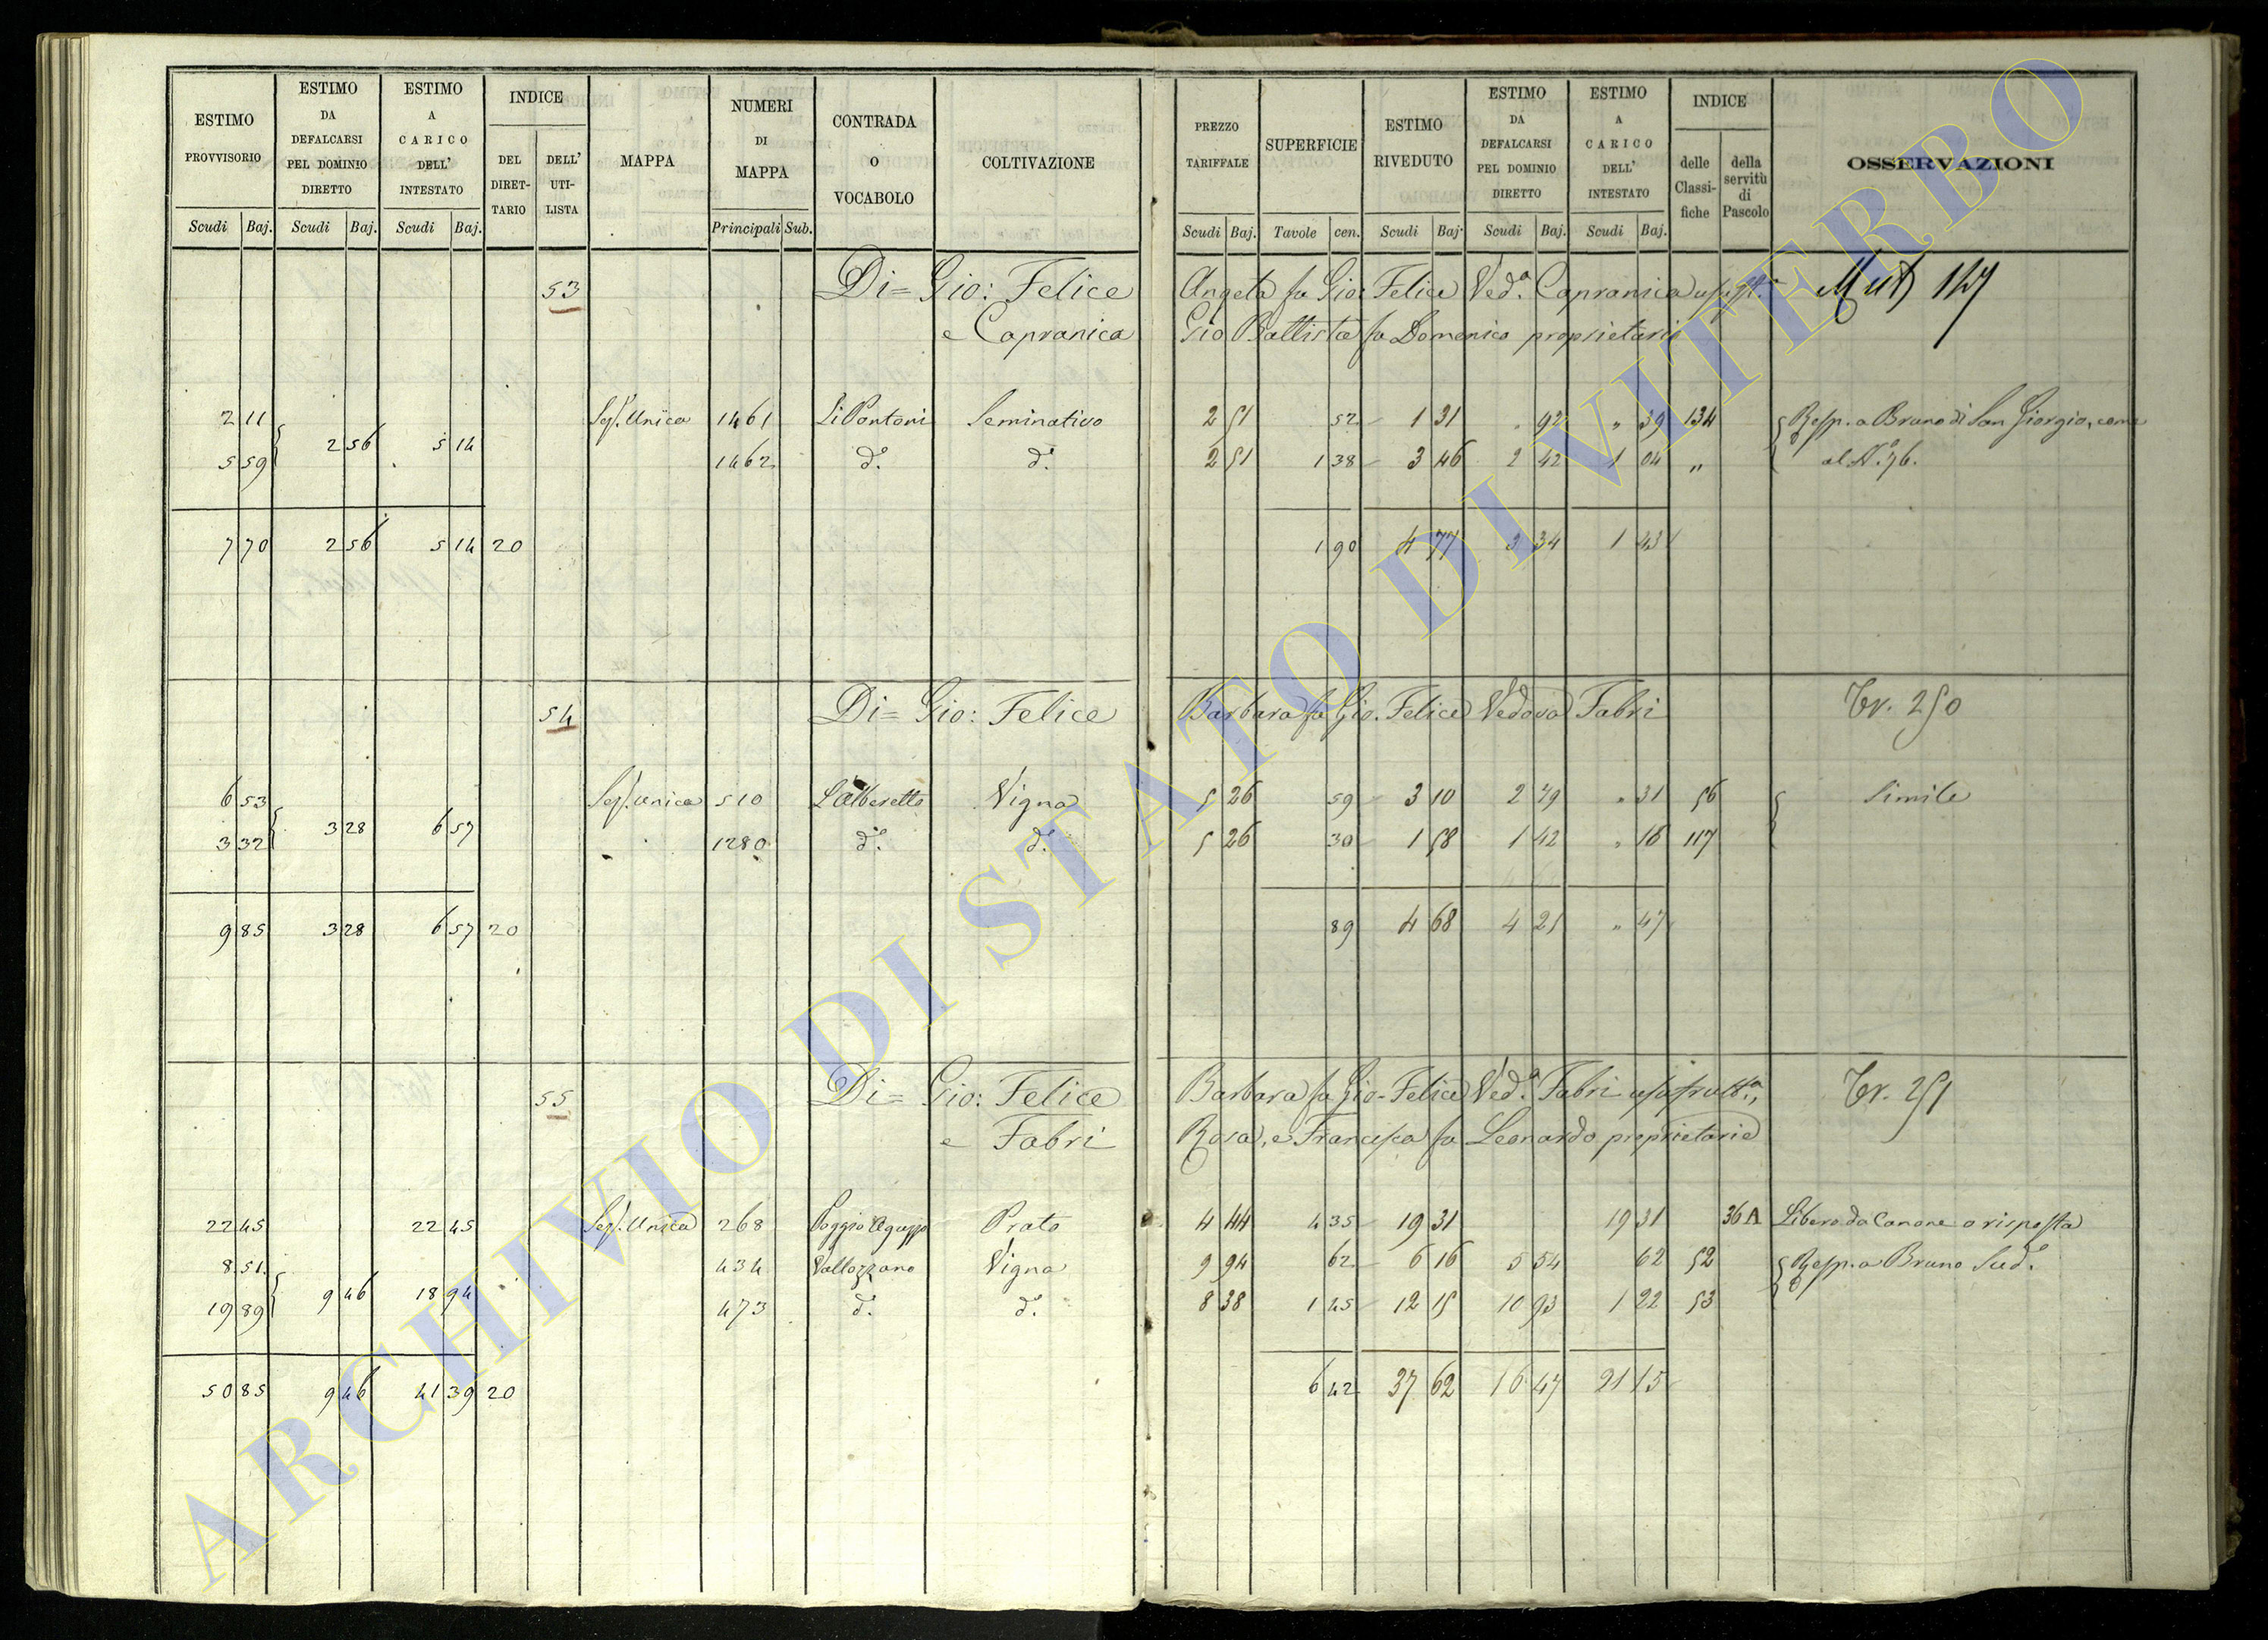 ESTIMO PROVVISORIO | ESTIMO DA DEFALCARSI PEL DOMINIO DIRETTO | ESTIMO A CARICO DELL' INTESTATO | INDICE DEL DIRETTARIO | DELL' UTILISTA | MAPPA | NUMERI DI MAPPA | CONTRADA O VOCABOLO | COLTIVAZIONE | PREZZO TARIFFALE | SUPERFICIE | ESTIMO RIVEDUTO | ESTIMO DA DEFALCARSI PEL DOMINIO DIRETTO | ESTIMO A CARICO DELL' INTESTATO | INDICE delle Classifiche | della servitù di Pascolo | OSSERVAZIONI
Scudi Baj. Scudi Baj. Scudi Baj. Principali Sub. Scudi Baj. Tavole cen. Scudi Baj. Scudi Baj. Scudi Baj.
53 Di= Gio: Felice Angela fu Gio: Felice Ved.ª Capranica Mut 147
e Capranica Gio Battista fu Domenico proprietari
2 11 Sez. Unica 1461 Li Pontoni Seminativo 2 51 52 1 31 " 92 " 39 134 Resp. a Bruno di San Giorgio, come
2 56 5 14
5 59 1462 d.º d.º 2 51 1 38 3 46 2 42 1 04 " al N.º 76.
7 70 2 56 5 14 20 1 90 4 77 3 34 1 43
54 Di= Gio: Felice Barbara fu Gio. Felice Vedova Fabri Tr. 250
6 53 Sez. Unica 510 L'Alberetto Vigna 5 26 59 3 10 2 79 " 31 56 Simile
3 28 6 57
3 32 1280 d.º d.º 5 26 30 1 58 1 42 " 16 117
9 85 3 28 6 57 20 89 4 68 4 21 " 47
55 Di= Gio: Felice Barbara fu Gio. Felice Ved.ª Fabri usufrutt.ª, Tr. 251
e Fabri Rosa, e Francesca fu Leonardo proprietarie
22 45 22 45 Sez. Unica 268 Poggio Prato 4 44 4 35 19 31 19 31 36 A Libero da Canone o risposta
8 51 434 Vallozzano Vigna 9 94 62 6 16 5 54 62 52 Resp. a Bruno Sud.º
9 46 18 94
19 89 473 d.º d.º 8 38 1 45 12 15 10 93 1 22 53
50 85 9 46 41 39 20 6 42 37 62 16 47 21 15
ARCHIVIO DI STATO DI VITERBO